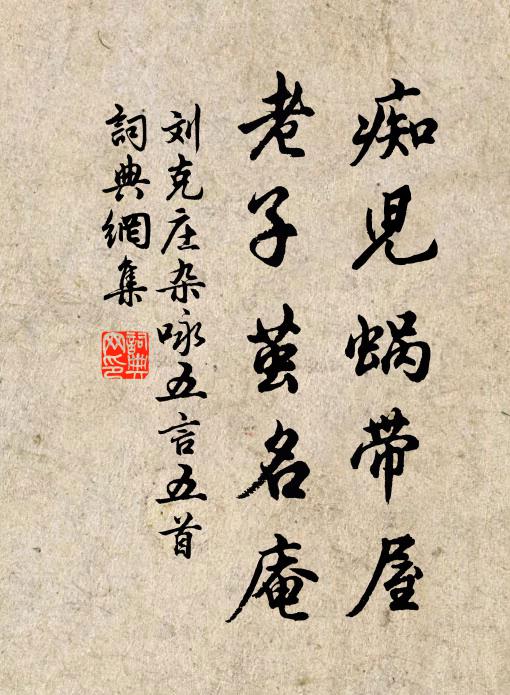 痴児蜗带屋
老子茧名庵
刘克庄杂咏五言五首
詞典網集
詞典网印